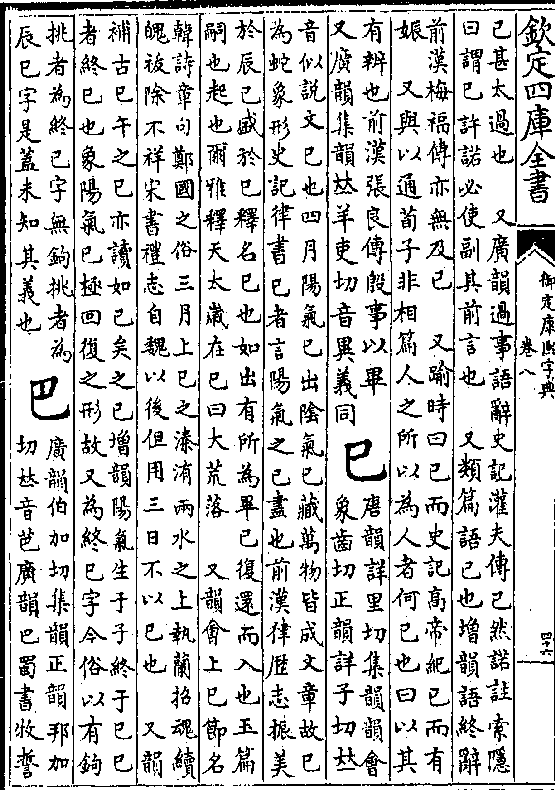 欽定四庫全書
御定康熙字典
卷八
四十六
已甚太過也　又廣韻過事語辭史記灌夫傳已然諾註索隱
曰謂已許諾必使副其前言也　又類篇語已也增韻語終辭
前漢梅福傳亦無及已　又踰時曰已而史記高帝紀已而有
娠　又與以通荀子非相篇人之所以為人者何已也曰以其
有辨也前漢張良傳殷事以畢
又廣韻集韻𠀤羊吏切音異義同
巳
唐韻詳里切集韻韻會
象齒切正韻詳子切𠀤
音似說文巳也四月陽氣巳出陰氣巳藏萬物皆成文章故巳
為蛇象形史記律書巳者言陽氣之巳盡也前漢律歷志振美
於辰巳盛於巳釋名巳也如出有所為畢巳復還而入也玉篇
嗣也起也爾雅釋天太歲在巳曰大荒落　又韻會上巳節名
韓詩章句鄭國之俗三月上巳之溱洧兩水之上執蘭招魂續
魄祓除不祥宋書禮志自魏以後但用三日不以巳也　又韻
補古巳午之巳亦讀如巳矣之巳增韻陽氣生于子終于巳巳
者終巳也象陽氣巳極回復之形故又為終巳字今俗以有鉤
挑者為終已字無鉤挑者為
辰巳字是蓋未知其義也
巴
廣韻伯加切集韻正韻邦加
切𠀤音芭廣韻巴蜀書牧誓